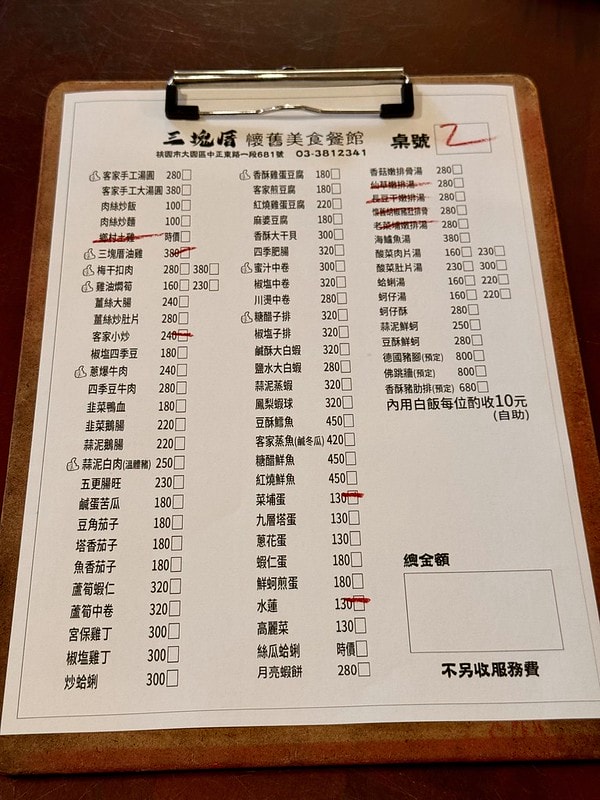 三塊厝 懷舊美食餐館
桌號 2
桃園市大園區中正東路一段681號 03-3812341
客家手工湯圓 280
客家手工大湯圓 380
肉絲炒飯 100
肉絲炒麵 100
鄉村土雞 時價
三塊厝油雞 380
梅干扣肉 280 380
雞油燜筍 160 230
薑絲大腸 240
薑絲炒肚片 280
客家小炒 240
椒塩四季豆 180
蔥爆牛肉 240
四季豆牛肉 280
韭菜鴨血 180
韭菜鵝腸 220
蒜泥鵝腸 220
蒜泥白肉(溫體豬) 250
五更腸旺 230
鹹蛋苦瓜 180
豆角茄子 180
塔香茄子 180
魚香茄子 180
蘆筍蝦仁 320
蘆筍中卷 320
宮保雞丁 300
椒塩雞丁 300
炒蛤蜊 300
香酥雞蛋豆腐 180
客家煎豆腐 180
紅燒雞蛋豆腐 220
麻婆豆腐 180
香酥大干貝 300
四季肥腸 320
蜜汁中卷 300
椒塩中卷 320
川燙中卷 280
糖醋子排 320
椒塩子排 320
鹹酥大白蝦 320
鹽水大白蝦 280
蒜泥蒸蝦 320
鳳梨蝦球 320
豆酥鱈魚 450
客家蒸魚(鹹冬瓜) 420
糖醋鮮魚 450
紅燒鮮魚 450
菜埔蛋 130
九層塔蛋 130
蔥花蛋 130
蝦仁蛋 180
鮮蚵煎蛋 180
水蓮 130
高麗菜 130
絲瓜蛤蜊 時價
月亮蝦餅 280
香菇嫩排骨湯 280
仙草嫩排湯 280
長豆干嫩排湯 280
懷舊胡椒豬肚排骨 280
老菜埔嫩排湯 280
海鱸魚湯 380
酸菜肉片湯 160 230
酸菜肚片湯 230 300
蛤蜊湯 160 220
蚵仔湯 160 220
蚵仔酥 280
蒜泥鮮蚵 250
豆酥鮮蚵 280
德國豬腳(預定) 800
佛跳牆(預定) 800
香酥豬肋排(預定) 680
內用白飯每位酌收10元
(自助)
總金額
不另收服務費